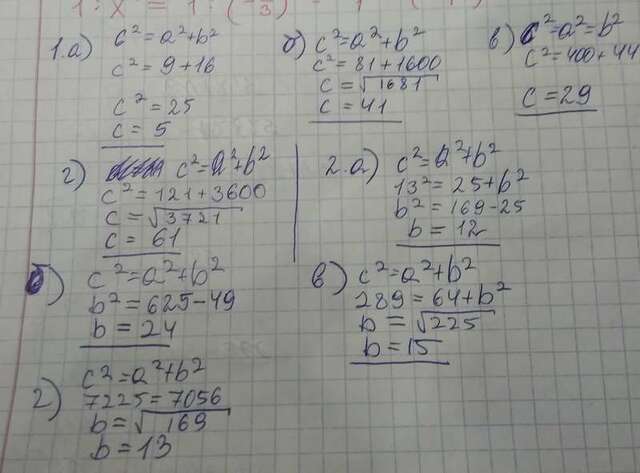 1:x = 1:(-
1.а) c²=a²+b²
c²=9+16
c²=25
c=5
б) c²=a²+b²
c²=81+1600
c=√1681
c=41
в) c²=a²=b²
c²=400+44
c=29
г) c²=a²+b²
c²=121+3600
c=√3721
c=61
2.а) c²=a²+b²
13²=25+b²
b²=169-25
b=12
б) c²=a²+b²
b²=625-49
b=24
в) c²=a²+b²
289=64+b²
b=√225
b=15
г) c²=a²+b²
7225=7056
b=√169
b=13